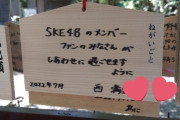 ねがいごと
SKE48のメンバー
ファンのみなさんが
しあわせに過ごせます
ように
2022年7月